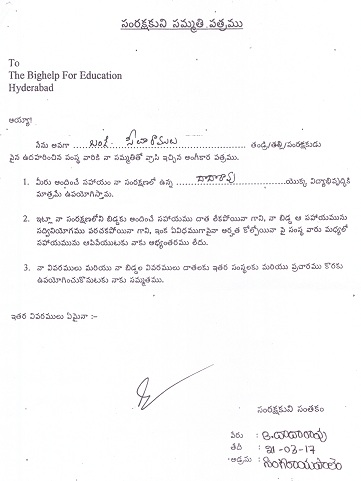 సంరక్షకుని సమ్మతి పత్రము
To
The Bighelp For Education
Hyderabad
అయ్యా!
నేను అనగా తండ్రి/తల్లి/సంరక్షకుడు
పైన ఉదహరించిన సంస్థ వారికి నా సమ్మతితో వ్రాసి ఇచ్చిన అంగీకార పత్రము.
1. మీరు అందించే సహాయం నా సంరక్షణలో ఉన్న దాదారావు యొక్క విద్యాభివృద్ధికి
మాత్రమే ఉపయోగిస్తాను.
2. ఇట్లా నా సంరక్షణలోని బిడ్డకు అందించే సహాయము దాత లేకపోయినా గాని, నా బిడ్డ ఆ సహాయమును
సద్వినియోగము పరచకపోయినా గాని, ఇంక ఏవిధముగానైనా అర్హత కోల్పోయినా పై సంస్థ వారు మధ్యలో
సహాయమును ఆపివేయుటకు నాకు అభ్యంతరము లేదు.
3. నా వివరములు మరియు నా బిడ్డల వివరములు దాతలకు ఇతర సంస్థలకు మరియు ప్రచారము కొరకు
ఉపయోగించుకొనుటకు నాకు సమ్మతము.
ఇతర వివరములు ఏమైనా :-
సంరక్షకుని సంతకం
పేరు : బి.దాదారావు
తేది : 21-03-17
అడ్రసు : సింగరాయపాలెం